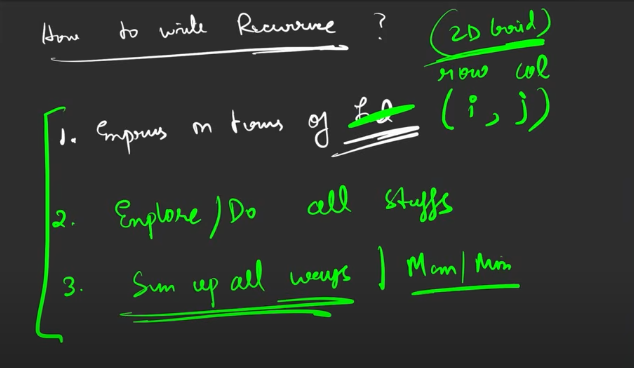 How to write Recurrence ? (2D Grid)
row col
1. Express in terms of (i, j)
2. Explore / Do all stuffs
3. Sum up all ways | Max/Min